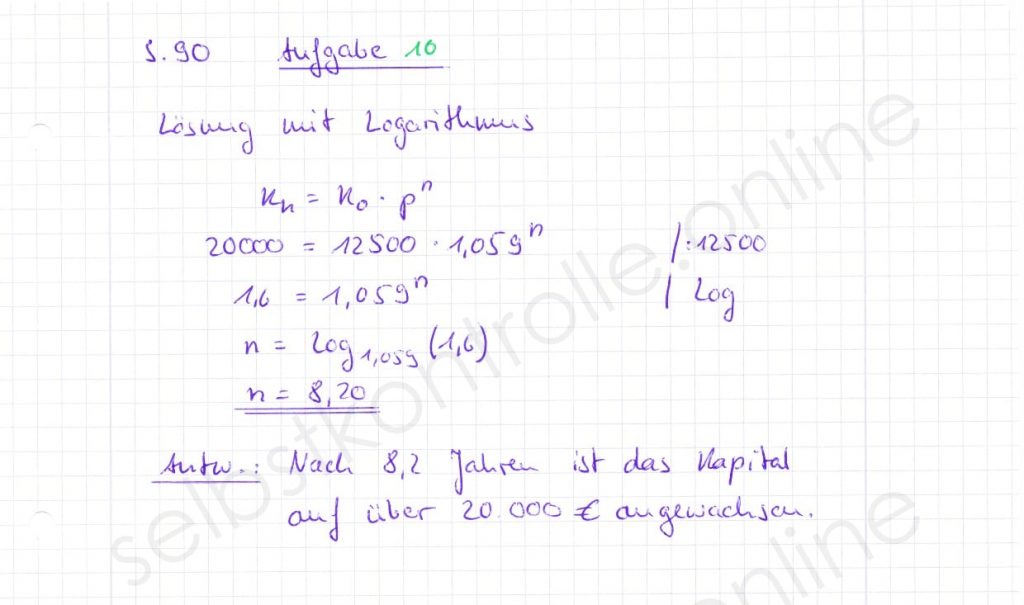 S. 90 Aufgabe 10
Lösung mit Logarithmus
Kn = K0 · p^n
20000 = 12500 · 1,059^n |:12500
1,6 = 1,059^n | log
n = log1,059 (1,6)
n = 8,20
Antw.: Nach 8,2 Jahren ist das Kapital
auf über 20.000 € angewachsen.
selbstkontrolle.online
online